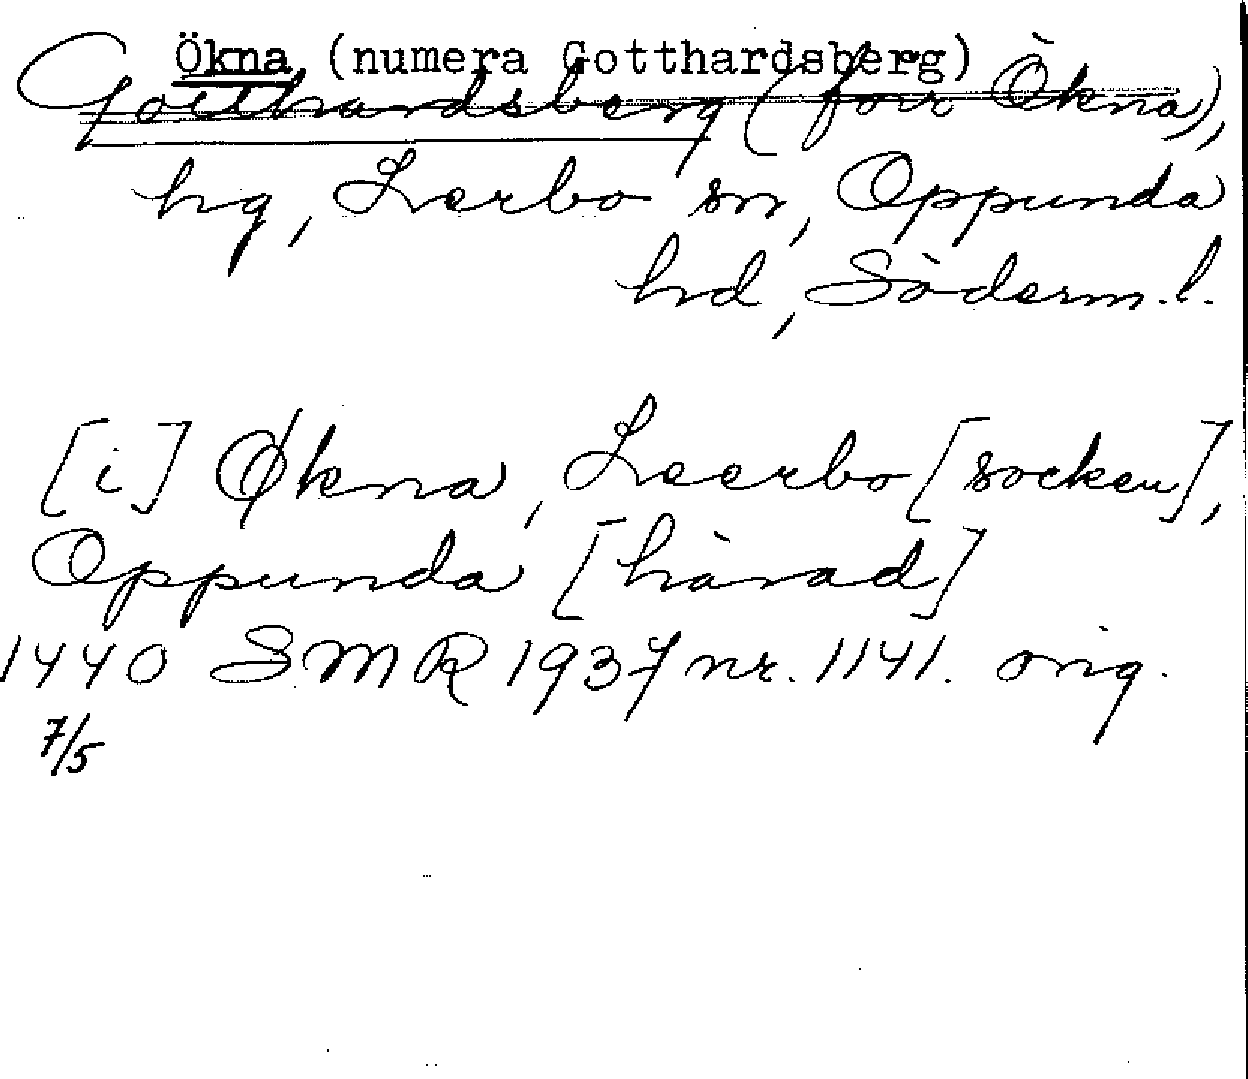 Ökna (numera Gotthardsberg)
Gotthardsberg (förr Ökna),
hg, Lerbo sn, Oppunda
hd, Söderm.l.
[i] Økna, Leerbo [socken],
Oppunda [härad]
1440 SMR 1937 nr. 1141. orig.
7/5